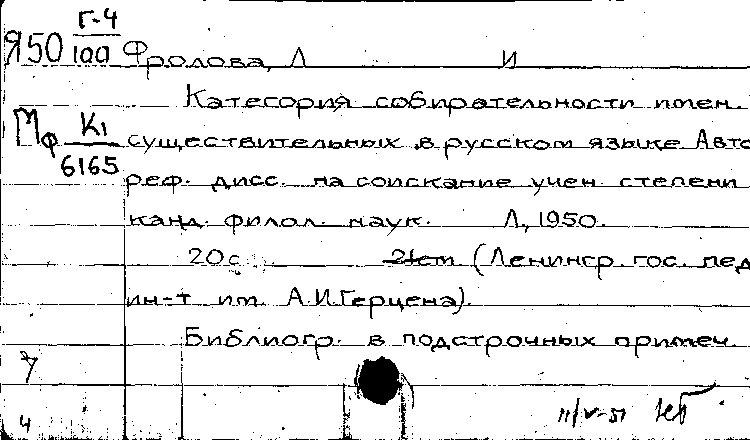 Я50 Г-4/100 Фролова, Л И
Категория собирательности имен
Мф К1/6165 существительных в русском языке Авто
реф. дисс. на соискание учен. степени
канд. филол. наук. Л, 1950.
20с (Ленингр. гос. пед
ин-т им. А.И.Герцена).
Библиогр. в подстрочных примеч.
4
11/V-51